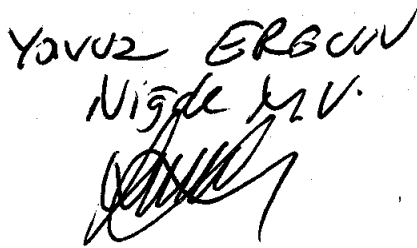 Yavuz ERGUN
Niğde M.V.